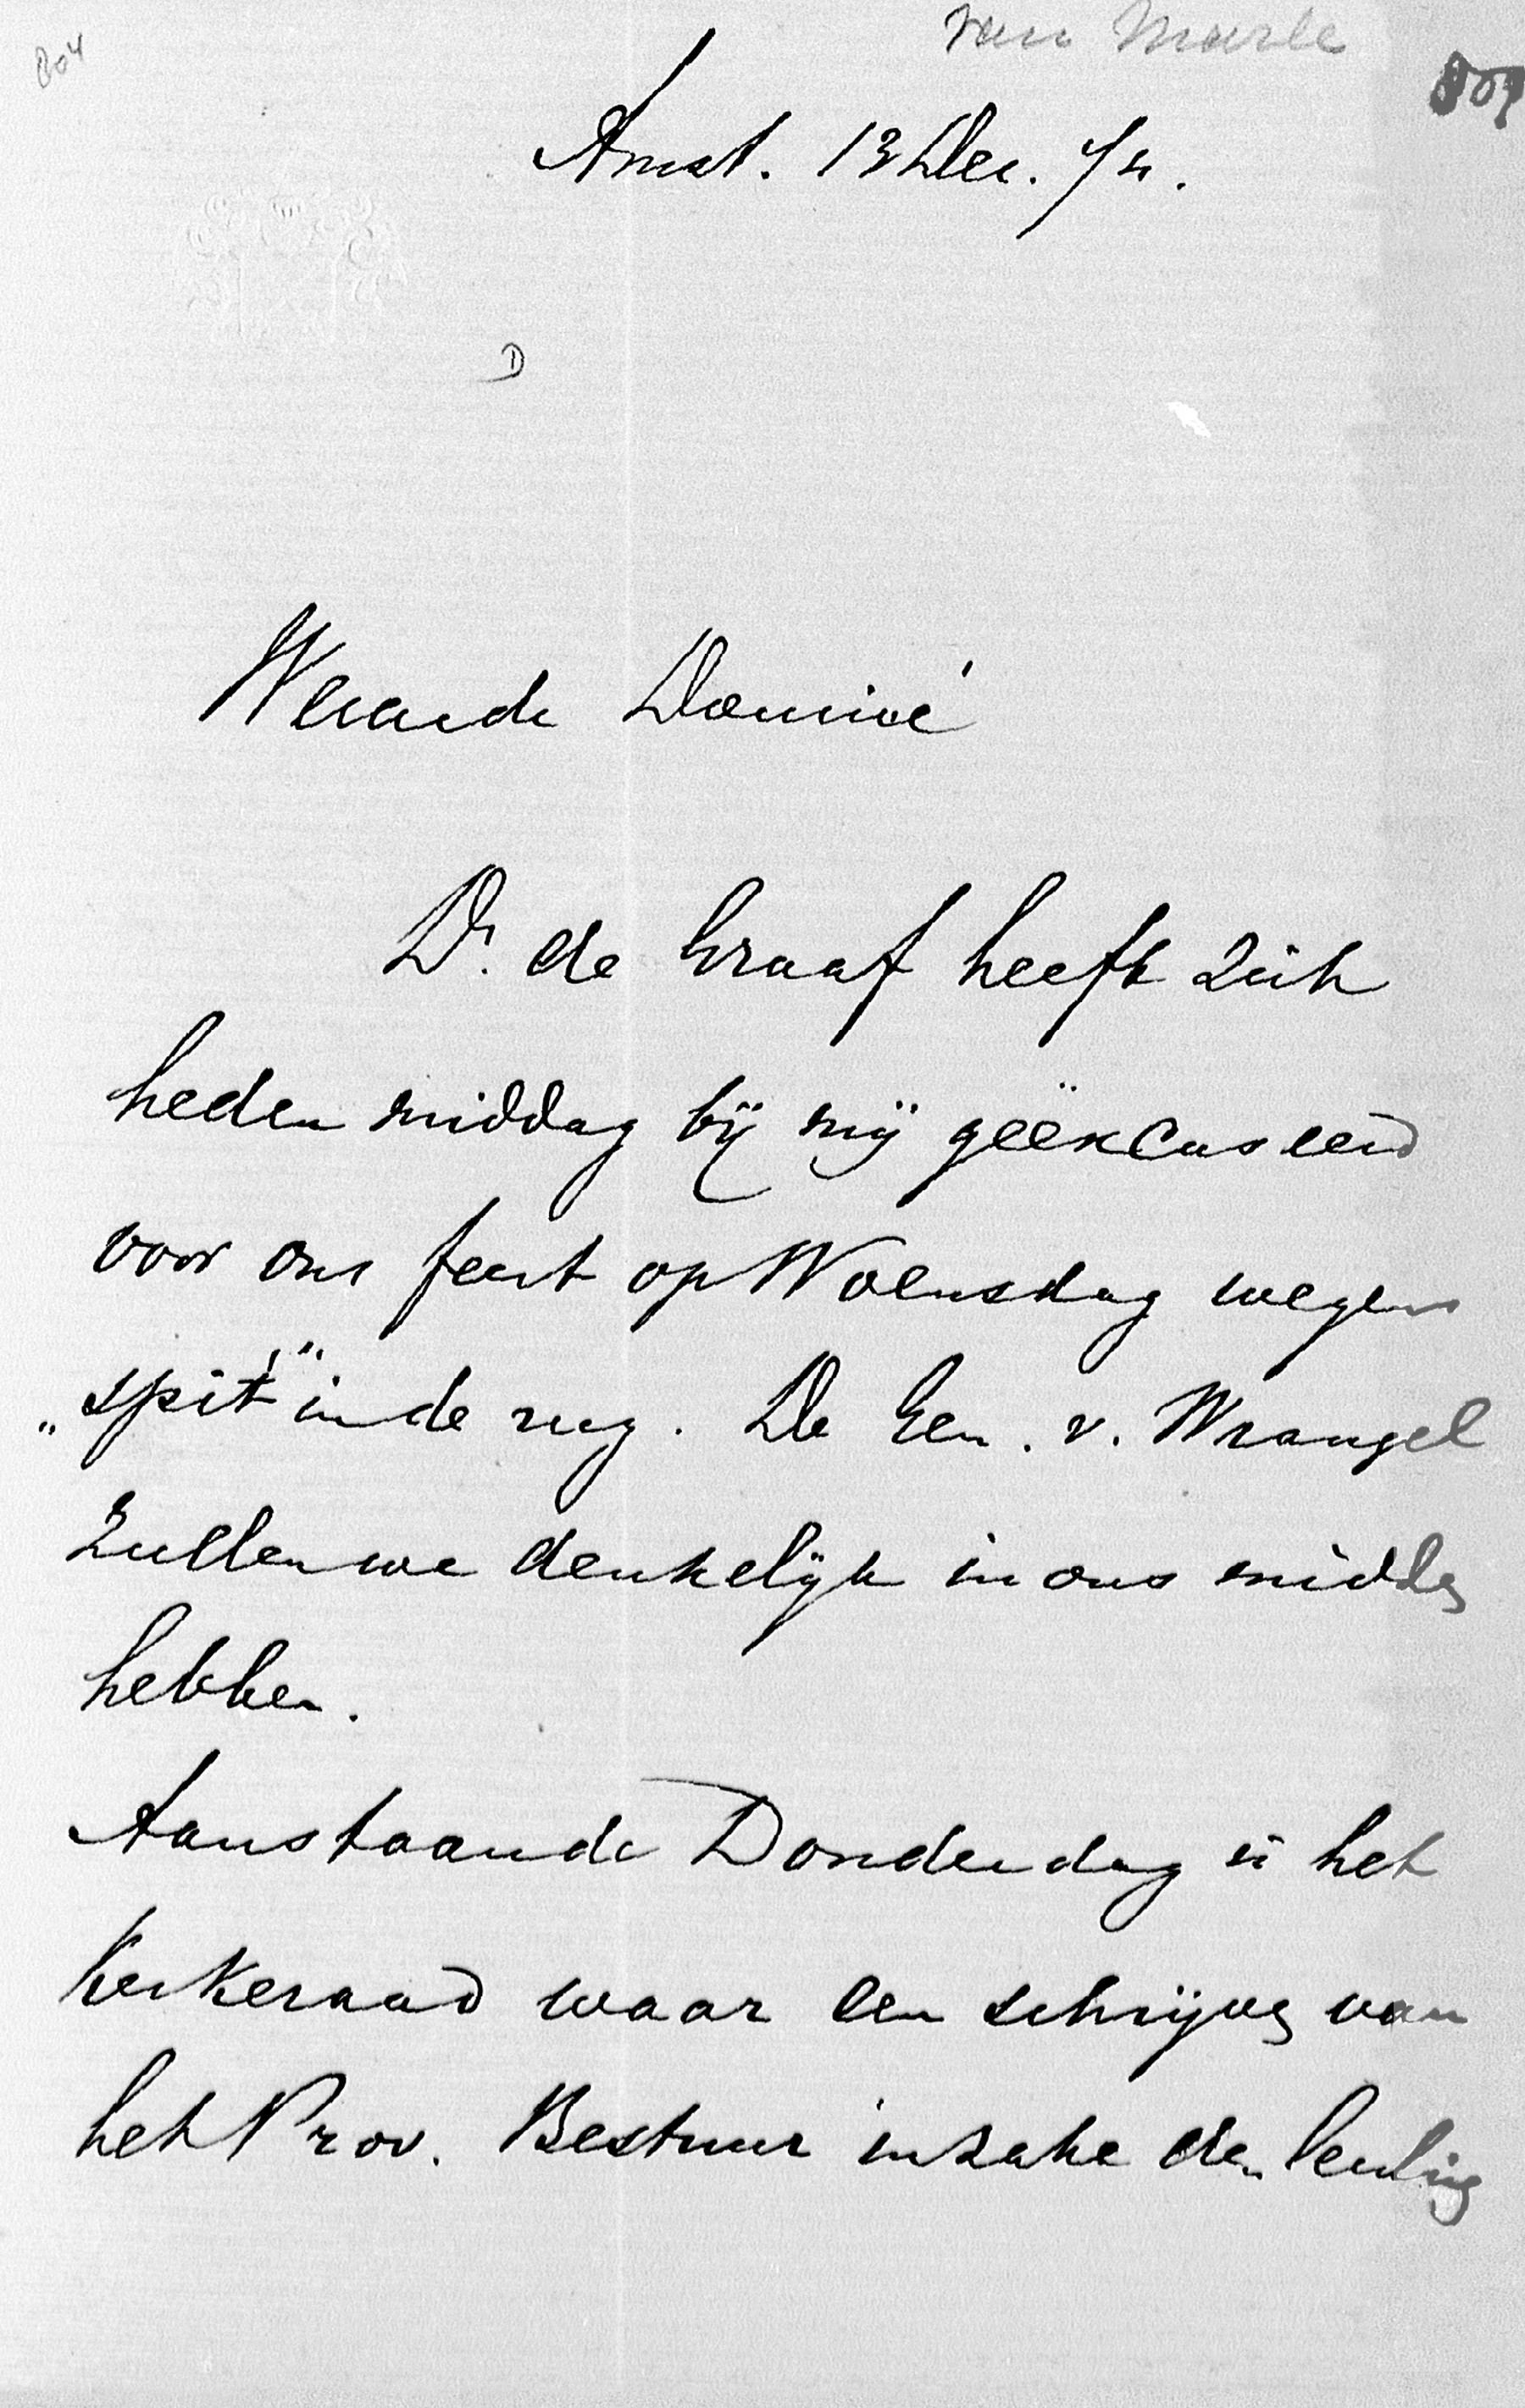 804
van Marle
Amst. 13 Dec. 74.
D
Waarde Dominé
Dr. de Graaf heeft zich
heden middag bij mij geëxcuseerd
voor ons feest op Woensdag wegens
„spit" in de rug. De Heer v. Wrangel
zullen we denkelijk in ons midden
hebben.
Aanstaande Donderdag is het
Kerkeraad waar een schrijven van
het Prov. Bestuur inzake de